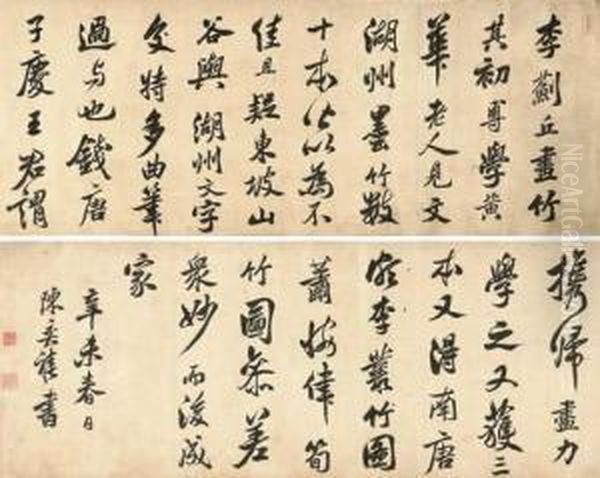 李薊丘畫竹
其初專學黃
華老人見文
湖州墨竹數
十本以為不
佳且疑東坡山
谷與湖州文字
交特多曲筆
過与也錢唐
子慶王君謂
攜歸盡力
學之又獲三
本又得南唐
李叢竹圖
蕭律筍
竹圖參差
衆妙而後成
家
辛未春日
陳奕禧書